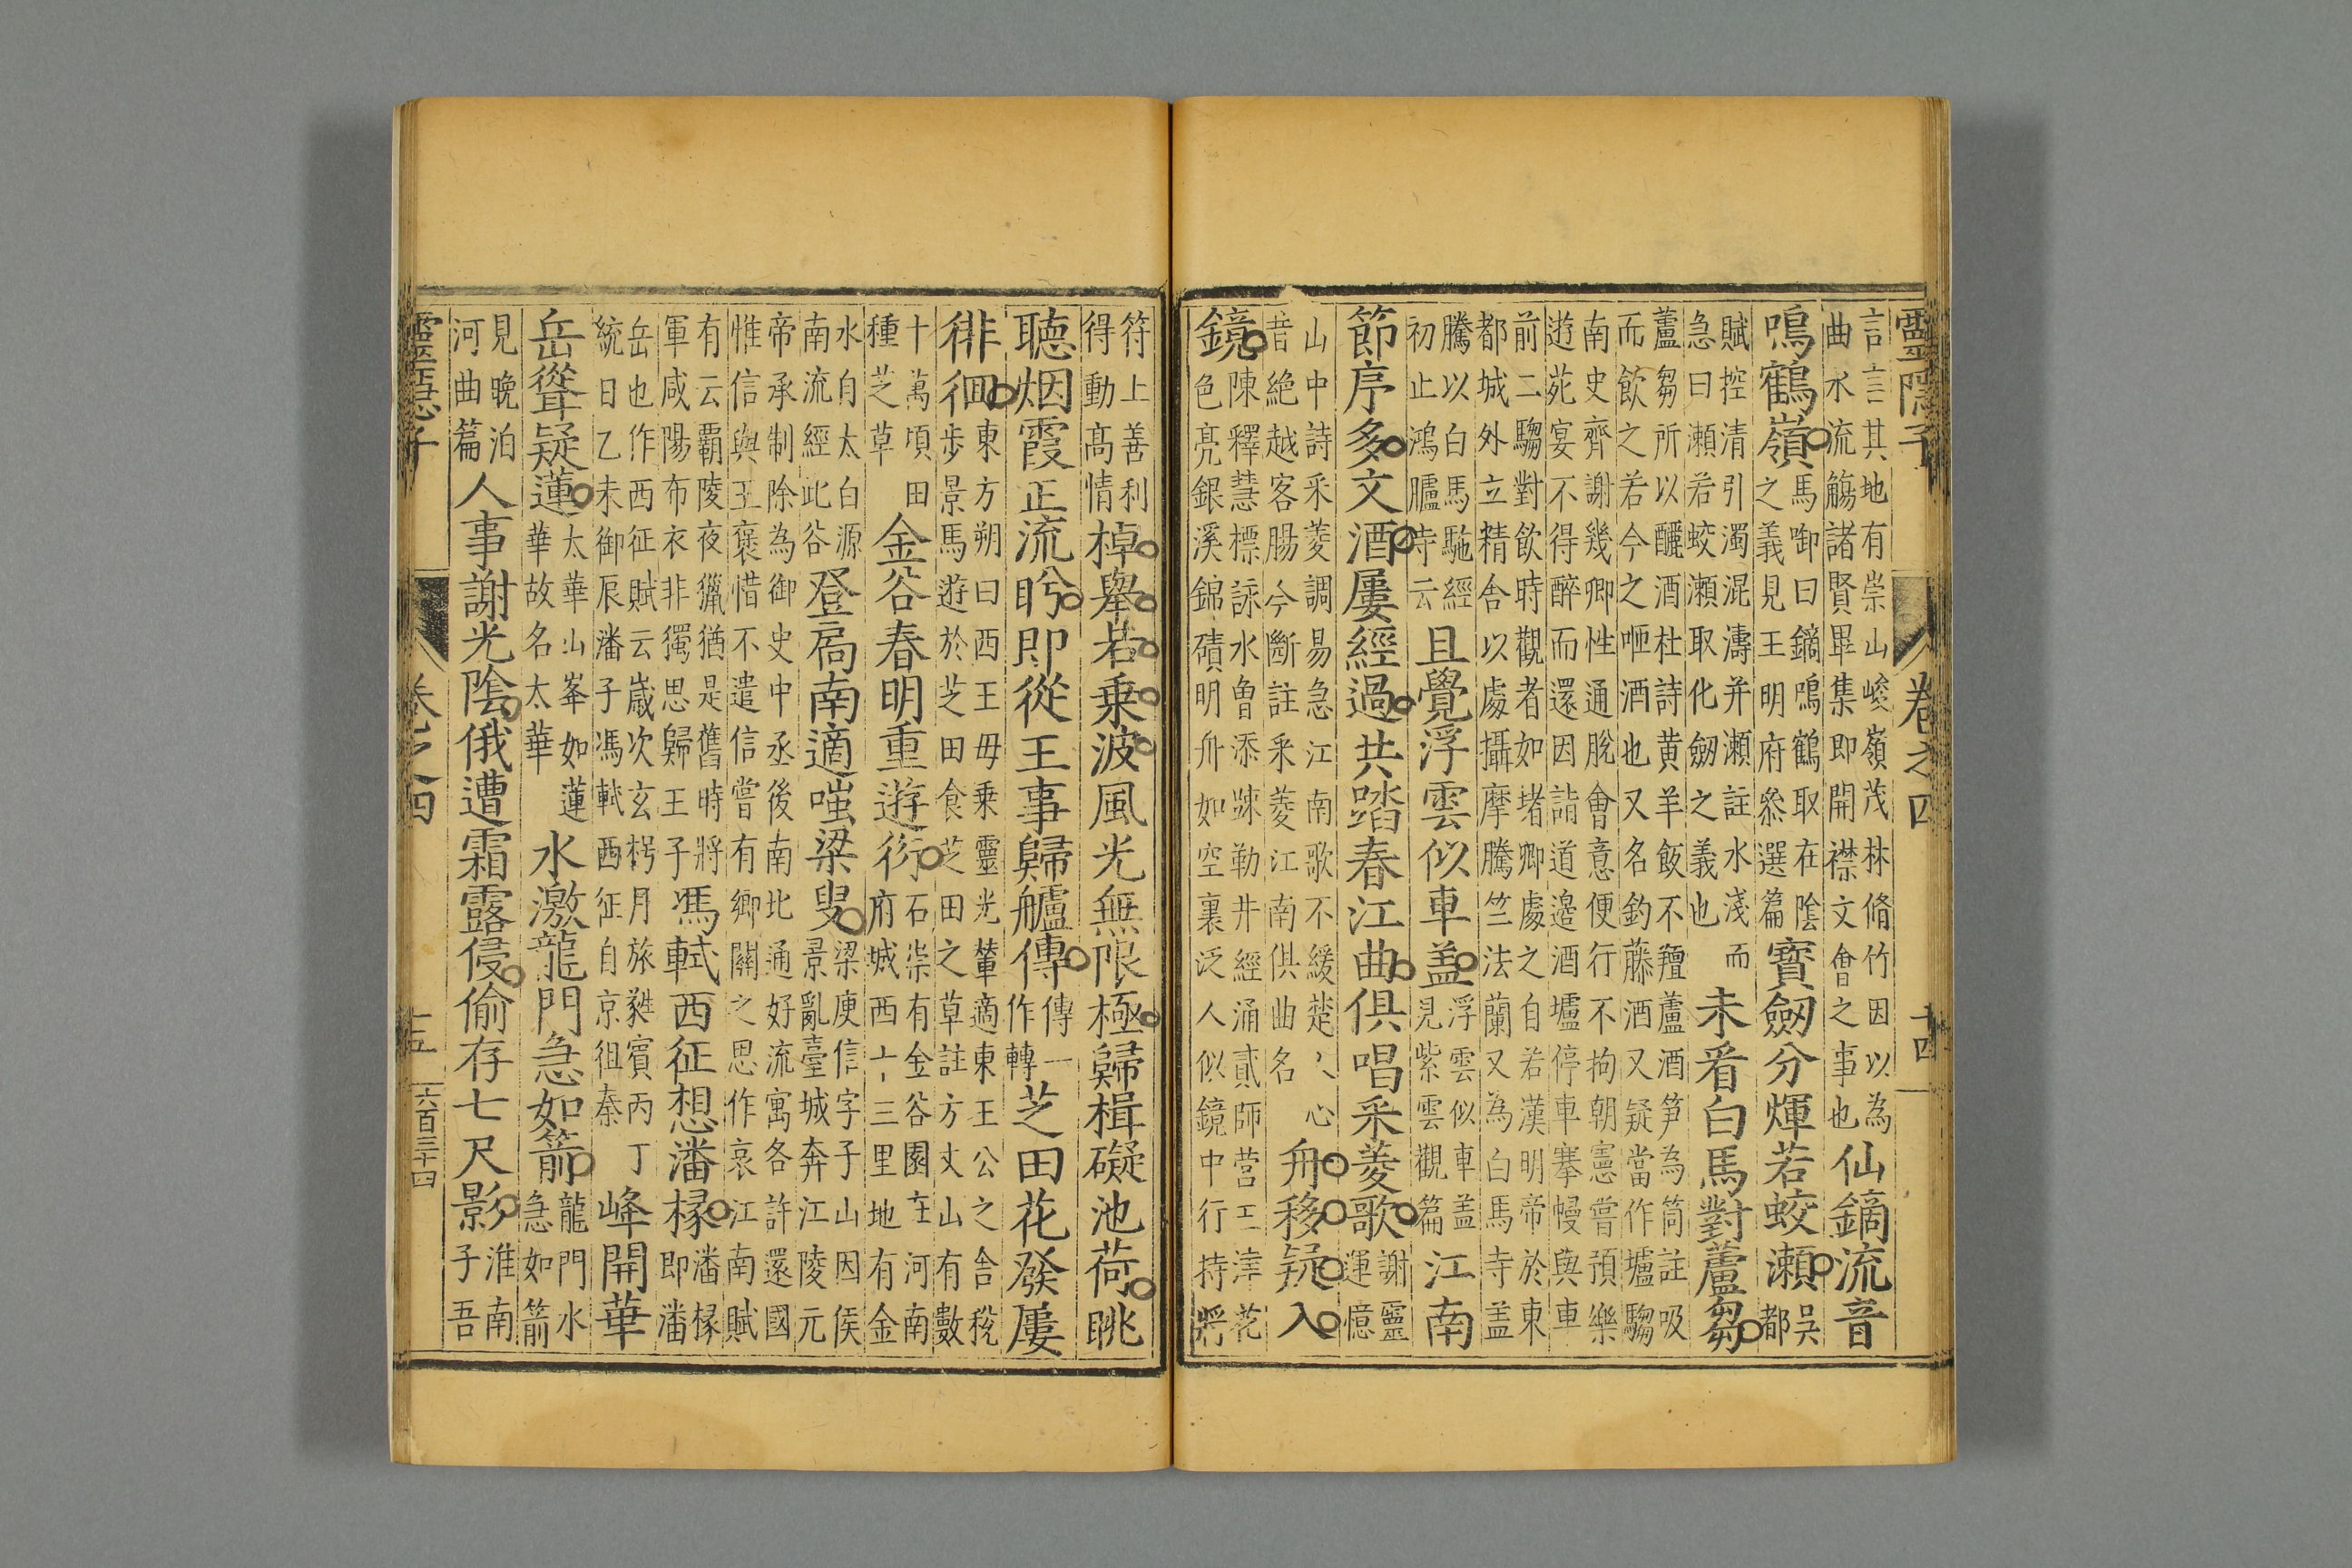 靈隱子 卷之四 十四
言言其地有崇山峻嶺茂林脩竹因以為
曲水流觴諸賢畢集即開襟文會之事也
仙鏑流音
鳴鶴嶺
馬卿曰鏑鳴鶴取在陰
之義見王明府叅選篇
寶劒分煇若蛟瀨
吳
都
賦控清引濁混濤并瀨註水淺而
急曰瀨若蛟瀨取化劒之義也
未看白馬對蘆芻
蘆芻所以釃酒杜詩黃羊飯不羶蘆酒笋為筒註吸
而飲之若今之咂酒也又名釣藤酒又疑當作壚騶
南史齊謝幾卿性通脫會意便行不拘朝憲嘗預樂
遊苑宴不得醉而還因詣道邉酒壚停車搴幔與車
前二騶對飲時觀者如堵卿處之自若漢明帝於東
都城外立精舍以處攝摩騰竺法蘭又為白馬寺盖
騰以白馬駞經
初止鴻臚寺云
且覺浮雲似車盖
浮雲似車盖
見紫雲觀篇
江南
節序多文酒屢經過共踏春江曲俱唱采菱歌
謝靈
運憶
山中詩采菱調易急江南歌不緩楚〻心
昔絶越客腸今斷註采菱江南俱曲名
舟移疑入
鏡
陳釋慧標詠水曾添疎勒井經涌貳師营三澤花
色亮銀溪錦磧明舟如空裏泛人似鏡中行持將
符上善利
得動高情
棹舉若乗波風光無限極歸楫礙池荷眺
聽烟霞正流盻即從王事歸艫傳
傳一
作轉
芝田花發屢
徘徊
東方朔曰西王母乗靈光輦適東王公之舎稅
步景馬遊於芝田食芝田之草註方丈山有數
十萬頃田
種芝草
金谷春明重遊衍
石崇有金谷園在河南
府城西十三里地有金
水自太白源
南流經此谷
登高南適嗤梁叟
梁庾信字子山因侯
景亂臺城奔江陵元
帝承制除為御史中丞後南北通好流寓各許還國
惟信與王褒惜不遣信嘗有鄉關之思作哀江南賦
有云霸陵夜獵猶是舊時將
軍咸陽布衣非獨思歸王子
馮軾西征想潘掾
潘掾
即潘
岳也作西征賦云嵗次玄枵月旅蕤賓丙丁
統日乙未御辰潘子馮軾西征自京徂秦
峰開華
岳聳疑蓮
太華山峯如蓮
華故名太華
水激龍門急如箭
龍門水
急如箭
見晚泊
河曲篇
人事謝光陰俄遭霜露侵偷存七尺影
淮南
子吾
靈隱子 卷之四 十五 六百三十四